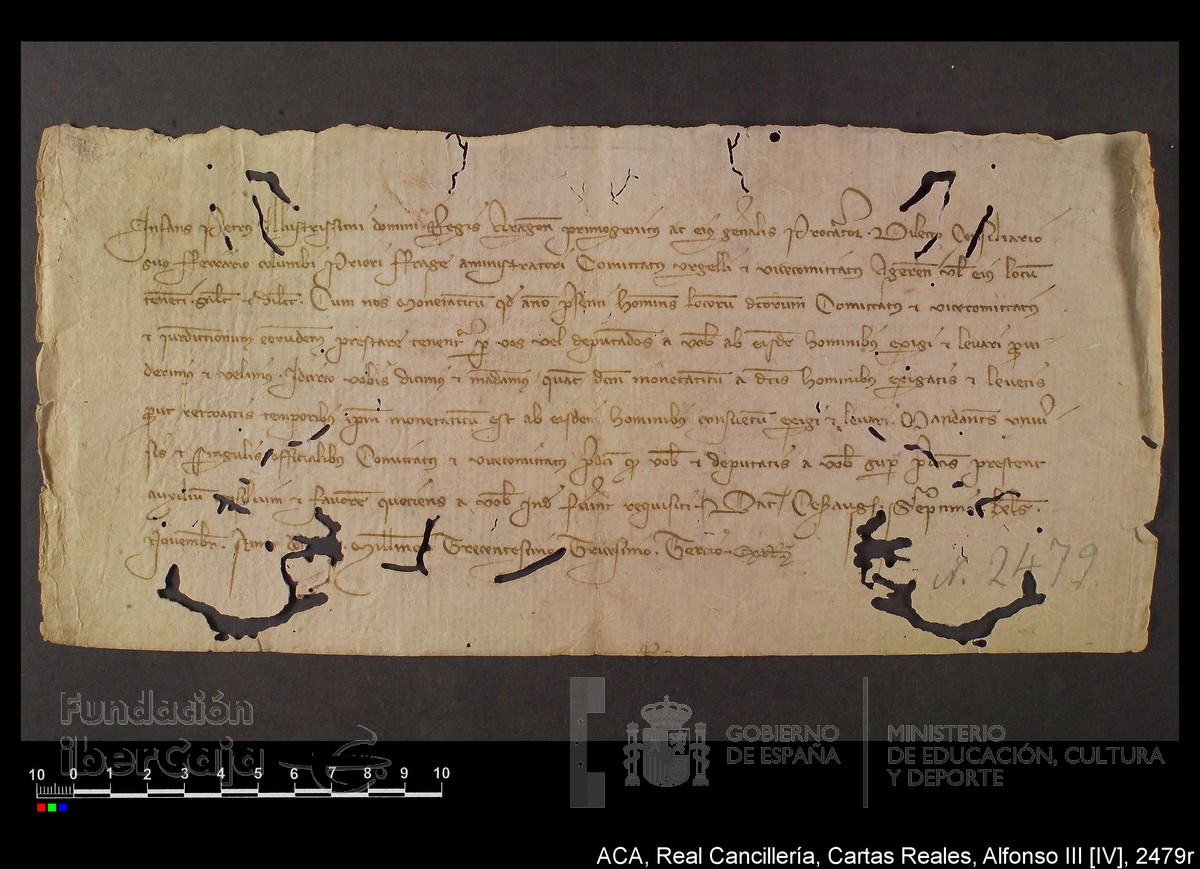 Infans Petrus Illustrissimi domini Regis Aragon primogenitus ac eius gnalis Procurator. Dilecto Consiliario
suo Ferrario columbi Priori Frage aministratori Comittatus urgelli et vicecomittatus Ageren vel eius locum
tenenti. salt et dilect. Cum nos monetaticum qd anno psenti homines locorum dctorum Comittatus et vicecomittatus
et iurdictionum eorundem prestare tenent per vos vel deputandos a vob ab eisdem hominibus exigi et levari provi
derimus et velimus. Idcirco vobis dicimus et mandamus quat dcm monetaticum a dctis hominibus exigatis et levetis
prout retroactis temporibus ipm monetaticum est ab eisdem hominibus consuetum exigi et levari. Mandantes univer
sis et singulis officialibus Comitatus et vicecomitatus pdci qd vob et deputatis a vob sup pdictis prestent
auxilium et favorem quociens a vob inde fuerint requisiti. Dat Cesaraugste Septimo kls.
Novembr. Anno dni Millimo Trecentesimo Tricesimo. Tercio.
N. 2479.
Fundación
iberCaja
GOBIERNO
DE ESPAÑA
MINISTERIO
DE EDUCACIÓN, CULTURA
Y DEPORTE
10 0 1 2 3 4 5 6 7 8 9 10
ACA, Real Cancillería, Cartas Reales, Alfonso III [IV], 2479r